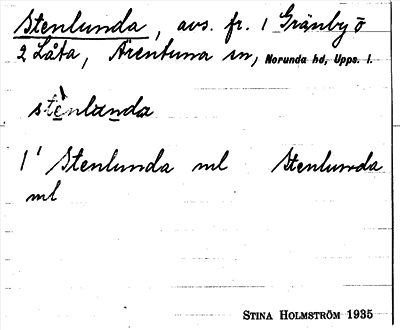 Stenlunda, avs. fr. 1 Gränby ö
2 Låta, Ärentuna sn, Norunda hd, Upps. l.
stènlanda
1' Stenlunda ml Stenlunda
ml
STINA HOLMSTRÖM 1935